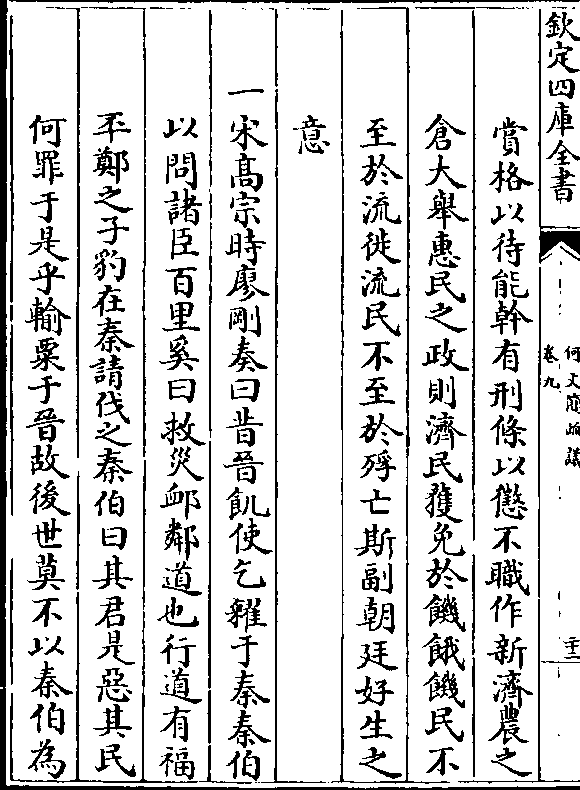 欽定四庫全書
何文簡疏議
卷九
二十二
賞格以待能幹有刑條以懲不職作新濟農之
倉大舉惠民之政則濟民獲免於饑餓饑民不
至於流徙流民不至於殍亡斯副朝廷好生之
意
一宋髙宗時廖剛奏曰昔晉飢使乞糴于秦秦伯
以問諸臣百里奚曰救災䘏鄰道也行道有福
丕鄭之子豹在秦請伐之秦伯曰其君是惡其民
何罪于是乎輸粟于晉故後世莫不以秦伯為